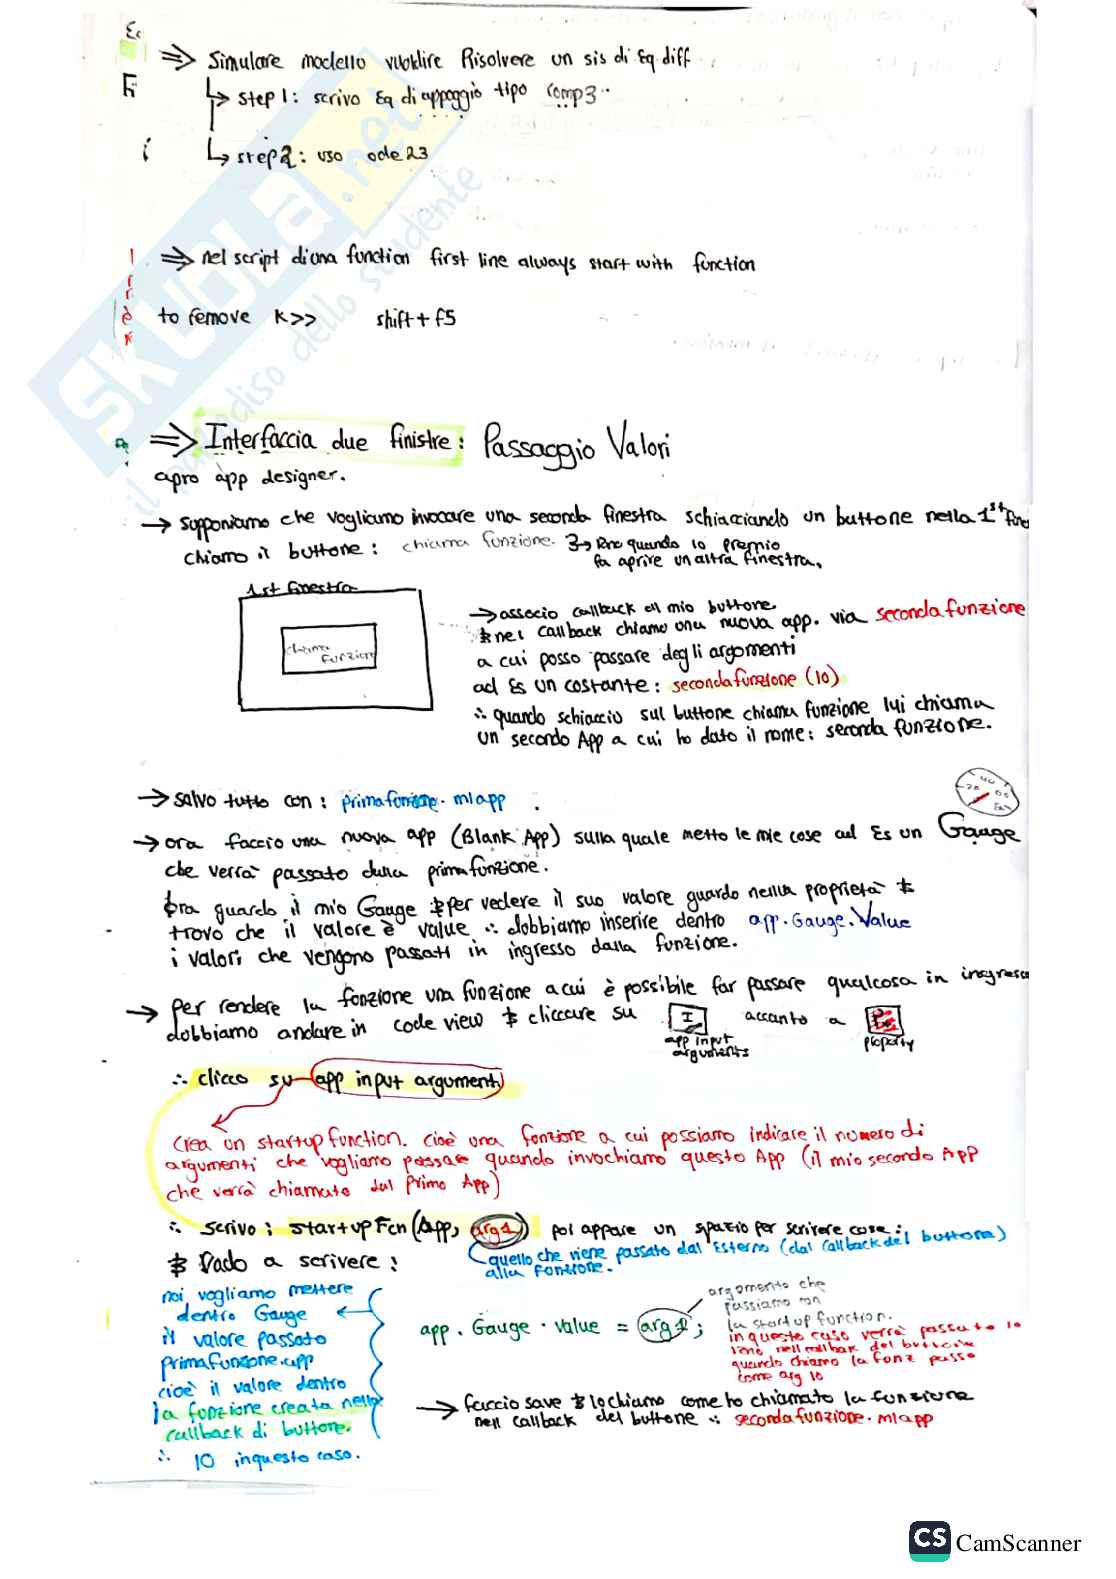 ⇒ Simulare modello vuoldire Risolvere un sis di Eq. diff
↳ step 1: scrivo Eq di appoggio tipo comp3
↳ step 2: uso ode 23
⇒ nel script di una function first line always start with function
to remove K>> shift + f5
⇒ Interfaccia due finistre: Passaggio Valori
apro app designer.
→ supponiamo che vogliamo invocare una seconda finestra schiacciando un buttone nella 1st
chiamo il buttone: chiama funzione. quando lo premio
fa aprire un altra finestra.
1st finestra
chiama funzione
→ associo callback al mio buttone
& nel callback chiamo una nuova app. via secondafunzione
a cui posso passare degli argomenti
ad Es un costante: secondafunzione (10)
∴ quando schiaccio sul buttone chiama funzione lui chiama
un secondo App a cui ho dato il nome: seconda funzione.
→ salvo tutto con: primafunzione.mlapp
→ ora faccio una nuova app (Blank App) sulla quale metto le mie cose ad Es un Gauge
che verrà passato dalla primafunzione.
Ora guardo il mio Gauge & per vedere il suo valore guardo nella proprietà &
trovo che il valore è value ∴ dobbiamo inserire dentro app.Gauge.Value
i valori che vengono passati in ingresso dalla funzione.
→ Per rendere la funzione una funzione a cui è possibile far passare qualcosa in ingresso
dobbiamo andare in code view & cliccare su accanto a
app input arguments
property
∴ clicco su app input argument
crea un startup function. cioè una funzione a cui possiamo indicare il numero di
argumenti che vogliamo passare quando invochiamo questo App (il mio secondo App
che verrà chiamato dal Primo App)
∴ scrivo: startupFcn(App, arg1) poi appare un spazio per scrivere cose
quello che viene passato dal Esterno (dal callback del buttone)
alla funzione.
& Vado a scrivere:
noi vogliamo mettere
dentro Gauge
il valore passato
primafunzione.app
cioè il valore dentro
la funzione creata nello
callback di buttone.
∴ 10 in questo caso.
app.Gauge.value = arg1;
argomento che
passiamo con
la startup function.
in questo caso verrà passato 10
nell callback del buttone
quando chiamo la funz passo
come arg 10
→ faccio save & lo chiamo come ho chiamato la funzione
nell callback del buttone ∴ secondafunzione.mlapp
SKUOLA.net
il paradiso dello studente
CS CamScanner